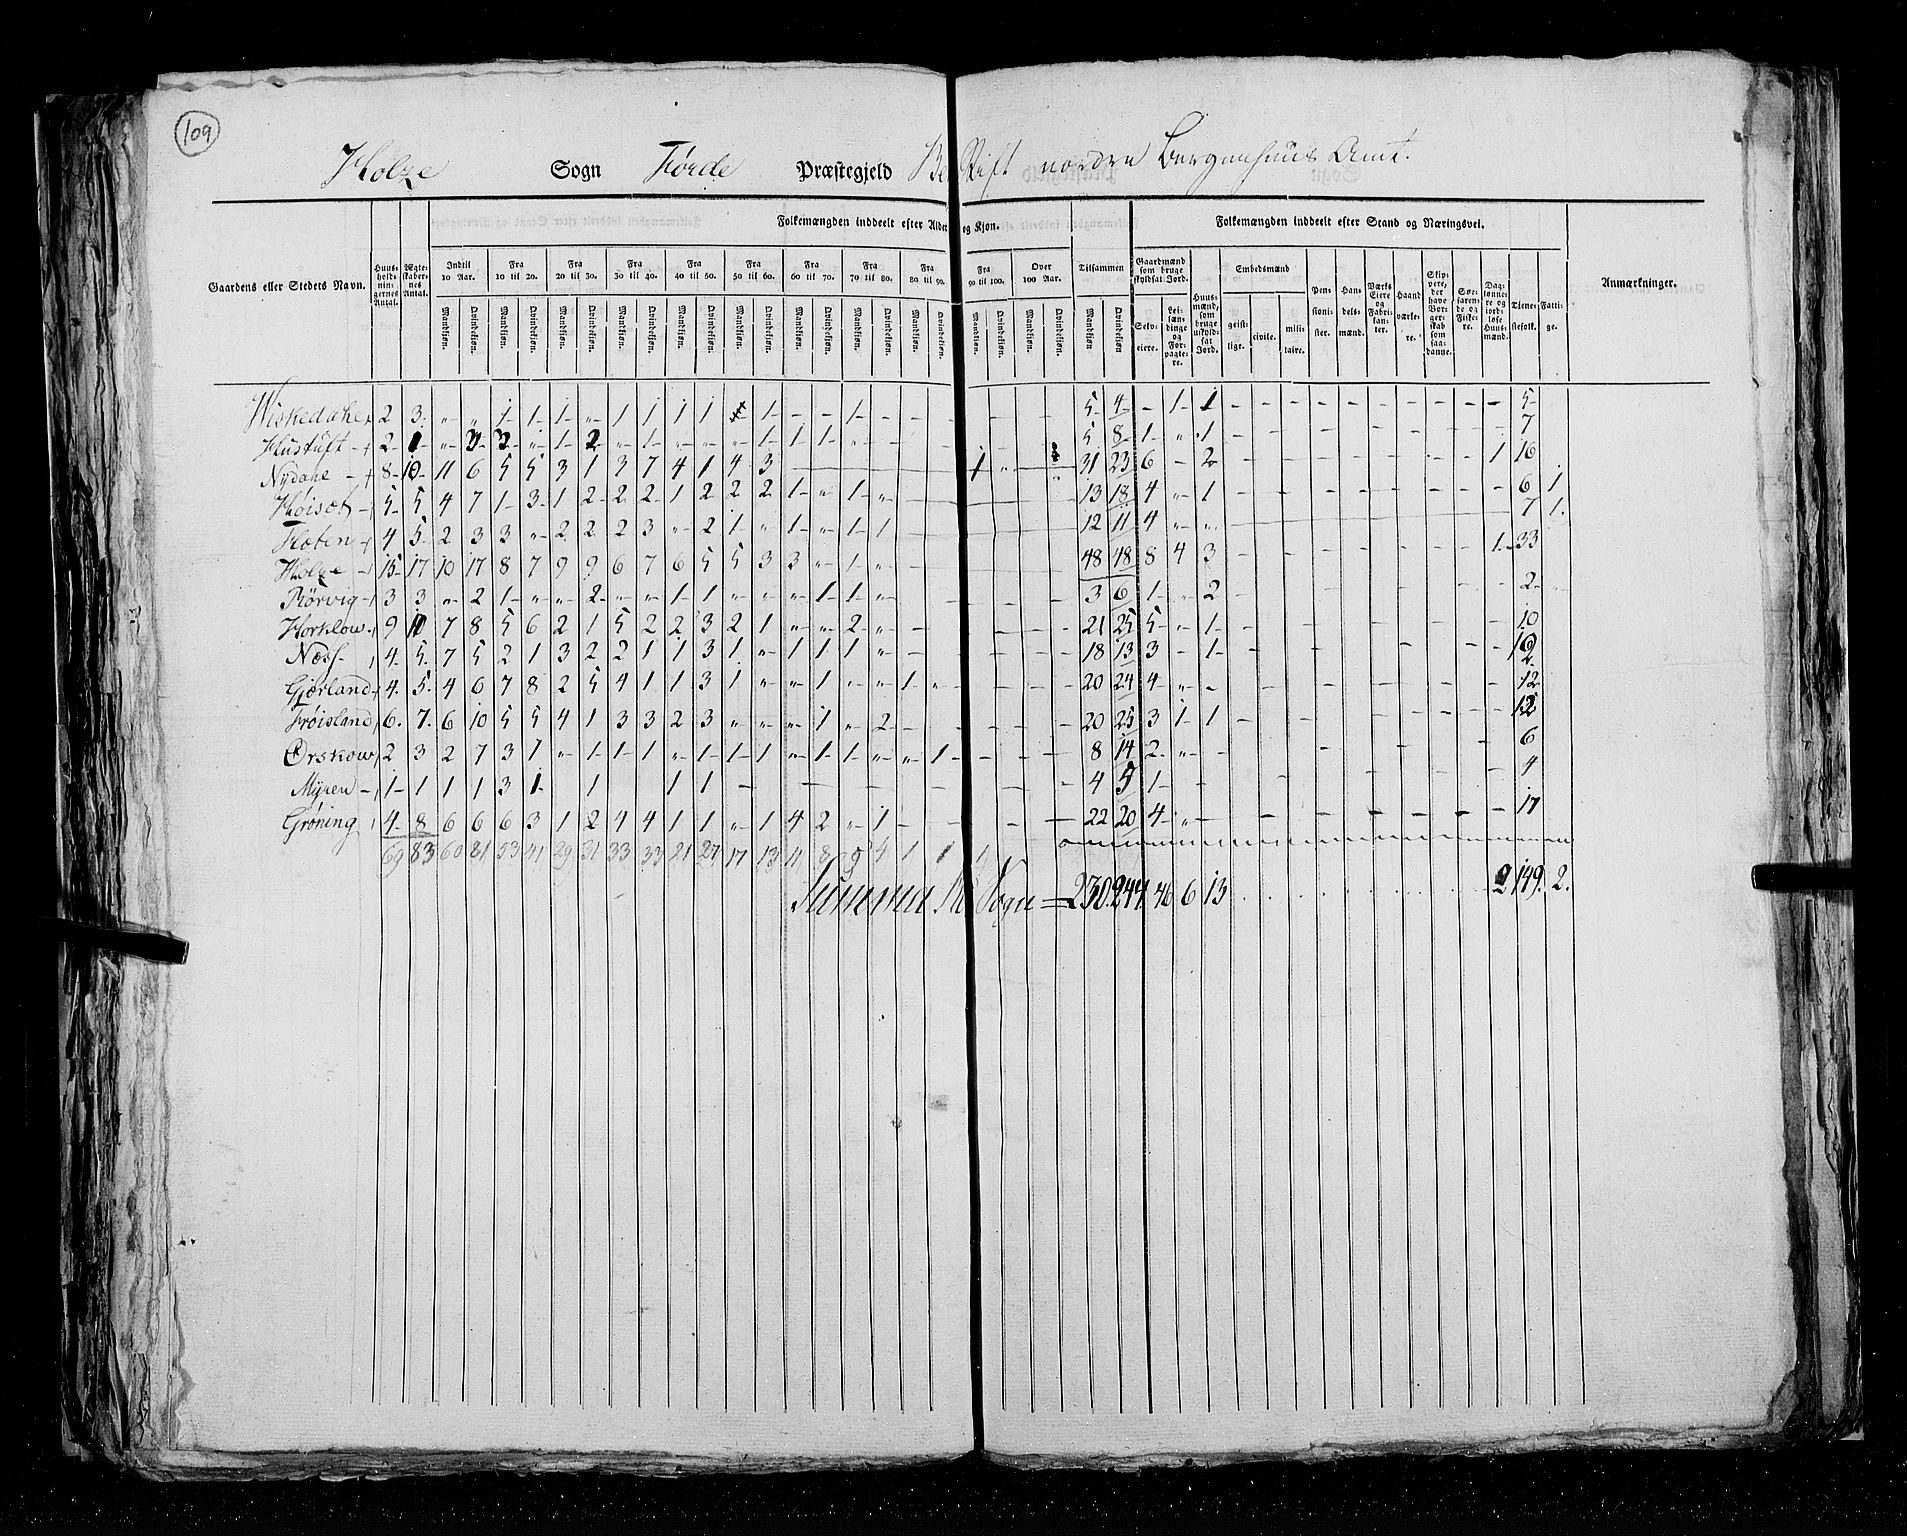 109
Holze Sogn Førde Præstegjeld Be Stift nordre Bergenhuus Amt.
Gaardens eller Stedets Navn. Huusholdningernes Antal. Ægteskabernes Antal. Folkemængden inddeelt efter Alder og Kjøn. Folkemængden inddeelt efter Stand og Næringsvei. Anmærkninger.
Indtil 10 Aar. Fra 10 til 20. Fra 20 til 30. Fra 30 til 40. Fra 40 til 50. Fra 50 til 60. Fra 60 til 70. Fra 70 til 80. Fra 80 til 90. Fra 90 til 100. Over 100 Aar. Tilsammen Gaardmænd som bruge skyldsat Jord. Huusmænd som bruge uskyldsat Jord. Embedsmænd Pensionister. Handelsmænd. Værks Eiere og Fabrikanter. Haandværkere. Skippere, der have Borgerskab som saadanne. Søefarende og Fiskere. Daglønnere og jordløse Huusmænd. Tienestefolk. Fattige.
Mandkiøn. Qvindekiøn. Mandkiøn. Qvindekiøn. Mandkiøn. Qvindekiøn. Mandkiøn. Qvindekiøn. Mandkiøn. Qvindekiøn. Mandkiøn. Qvindekiøn. Mandkiøn. Qvindekiøn. Mandkiøn. Qvindekiøn. Mandkiøn. Qvindekiøn. Mandkiøn. Qvindekiøn. Mandkiøn. Qvindekiøn. Mandkiøn. Qvindekiøn. Selveiere. Leilændinge og Forpagtere. geistlige. civile. militaire.
2 3 - - 1 1 1 - 1 1 1 1 1 - - 1 - - - - - 5 4 - 1 1 - - - - - - - - - - 5
Hustuft 2 - - 1 - 2 - 1 - - - 1 1 1 - - 5 8 1 - 1 - - - - - - - - - - 7
Nydahl 8 10 11 6 5 5 3 1 3 7 4 1 4 3 1 - 31 23 6 - 2 1 16
Høiset 5 5 4 7 1 3 1 2 2 2 1 2 2 2 1 - 1 - 13 18 4 - 1 6 1
4 5 2 3 3 - 2 2 2 3 - 2 1 - 1 - 1 1 12 11 4 - - 7 1
Holze 15 17 10 17 8 7 9 9 6 7 6 5 5 3 3 - 1 - 48 48 8 4 3 1 33
Rørvig 3 3 - 2 1 - - 2 - 1 1 - - - 1 1 - 3 6 1 - 2 2
Horklow 9 7 8 5 6 2 1 5 2 2 3 2 1 - - 2 - 21 25 5 - 1 10
Næss 4 5 7 5 2 1 3 2 2 1 1 3 1 - 1 1 1 - 18 13 3 - 1
Gjørland 4 5 4 6 7 8 2 5 4 1 1 3 1 - - 1 - - 1 - 20 24 4 - - 12
Frøisland 6 7 6 10 5 5 4 1 3 3 2 3 - - - 1 - 2 20 25 3 1 1 12
Ørskow 2 3 2 7 3 1 - 1 1 1 - 1 1 1 - 1 1 - - 1 8 14 2 - - 6
Myren 1 1 1 1 3 1 1 1 1 4 5 1 - - 4
Grøning 4 8 6 6 6 3 1 2 4 4 1 1 - 1 4 2 - 1 22 20 4 - - 17
69 83 60 81 53 41 29 31 33 33 21 27 17 13 11 8 9 4 1 1 1
Summa Sogn = 230 244 46 6 13 2 149. 2.